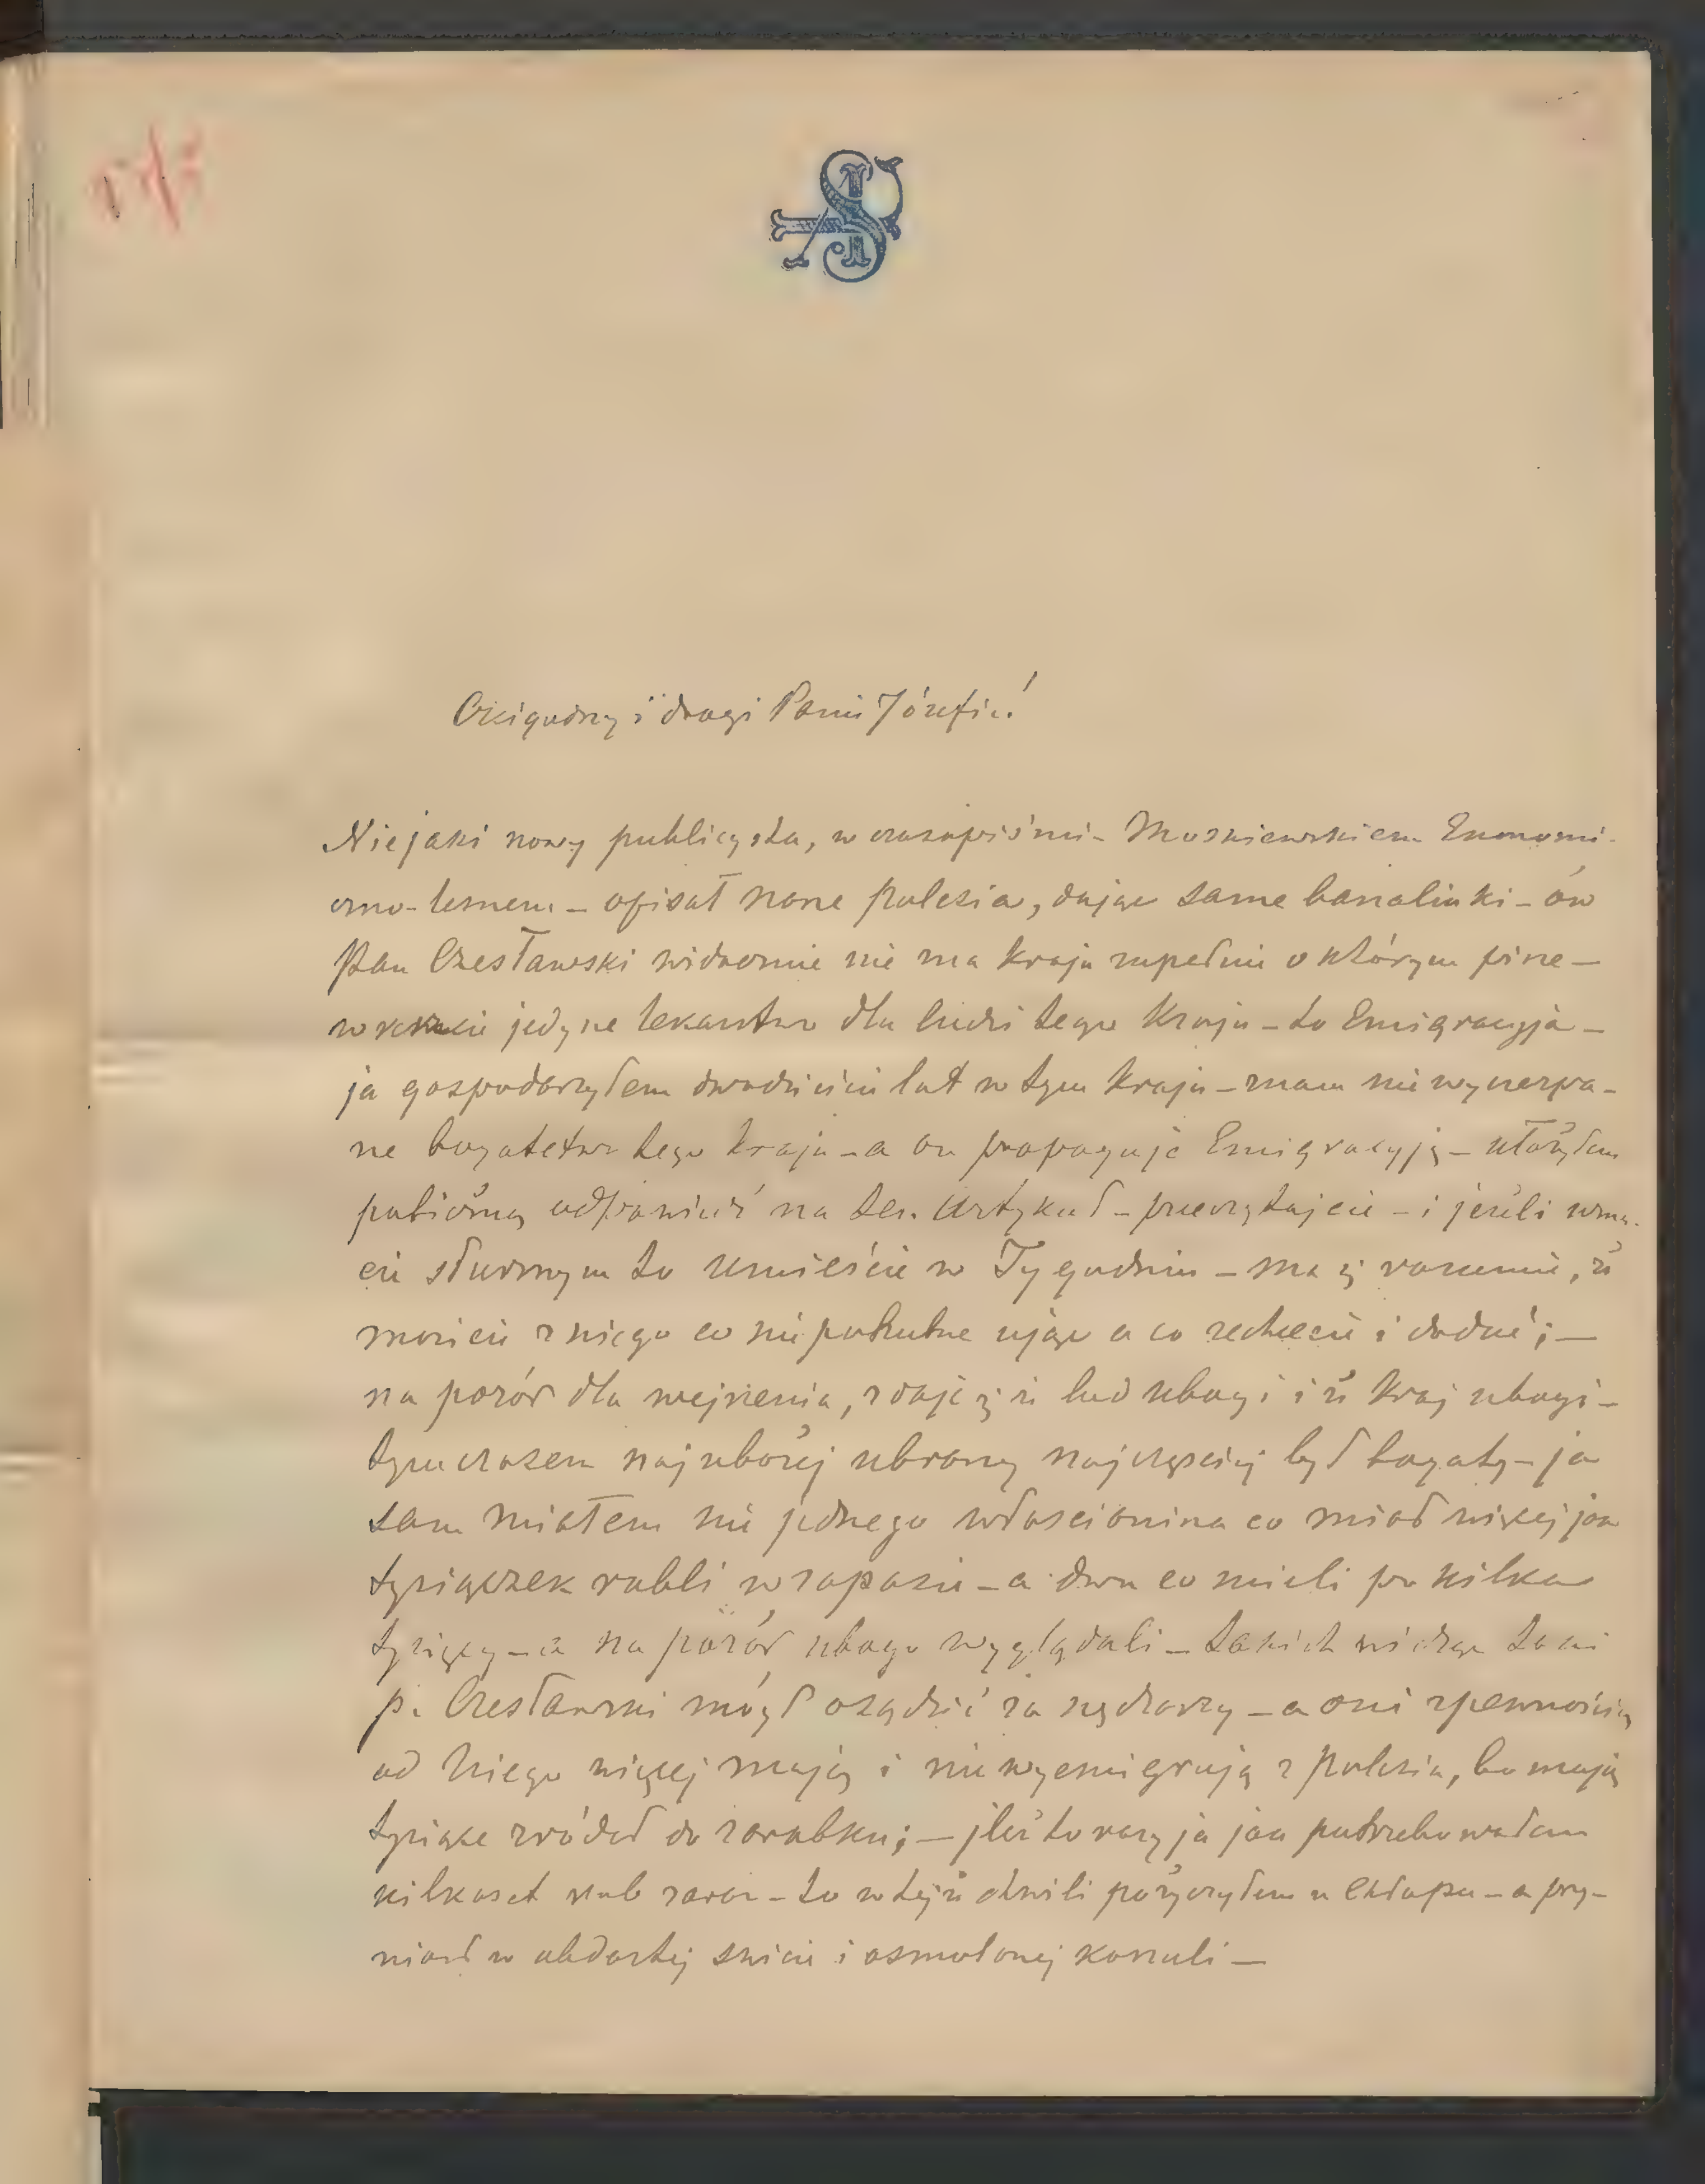 Czcigodny i drogi Panie Józefie!
Niejaki nowy publicysta, w czasopiśmie Moskiewskiem Ekonomi-
czno-lesnem – opisał nasze polesie, dając same banaluki – ów
Pan Czesławski widocznie nie zna kraju zupełnie o którym pisze –
jedyne lekarstwo dla ludzi tego Kraju – to Emigracyja –
ja gospodarzyłem dwadzieścia lat w tym kraju – znam niewyczerpa-
ne bogatctwa tego kraju – a on propaguje Emigracyją – ułożyłem
pobieżną odpowiedź na ten Artykuł – przeczytajcie – i jeżeli uzna-
cie słusznym to umieście w Tygodniu – ma się rozumić, że
możecie z niego co niepotrzebne ująć a co zechcecie i dodać; –
na pozór dla wejrzenia, zdaje się że lud ubogi i że kraj ubogi –
tymczasem najubożej ubrany najczęściej był bogaty – ja
sam miałem nie jednego włościanina co miał więcej jak
tysiączek rubli w zapasie – a dwu co mieli po kilka
tysięcy – a na pozór ubogo wyglądali – takich widząc
p. Czesławski mógł osądzić za nędzarzy – a oni zpewnością
od niego więcej mają i niewyemigrują z polesia, bo mają
tysiące źródeł do zarobku; – jleż to razy ja jak potrzebowałem
kilkaset rub zaraz – to w tejże chwili pożyczyłem u Chłopa – a przy-
niosł w obdartej świcie i osmolonej koszuli –